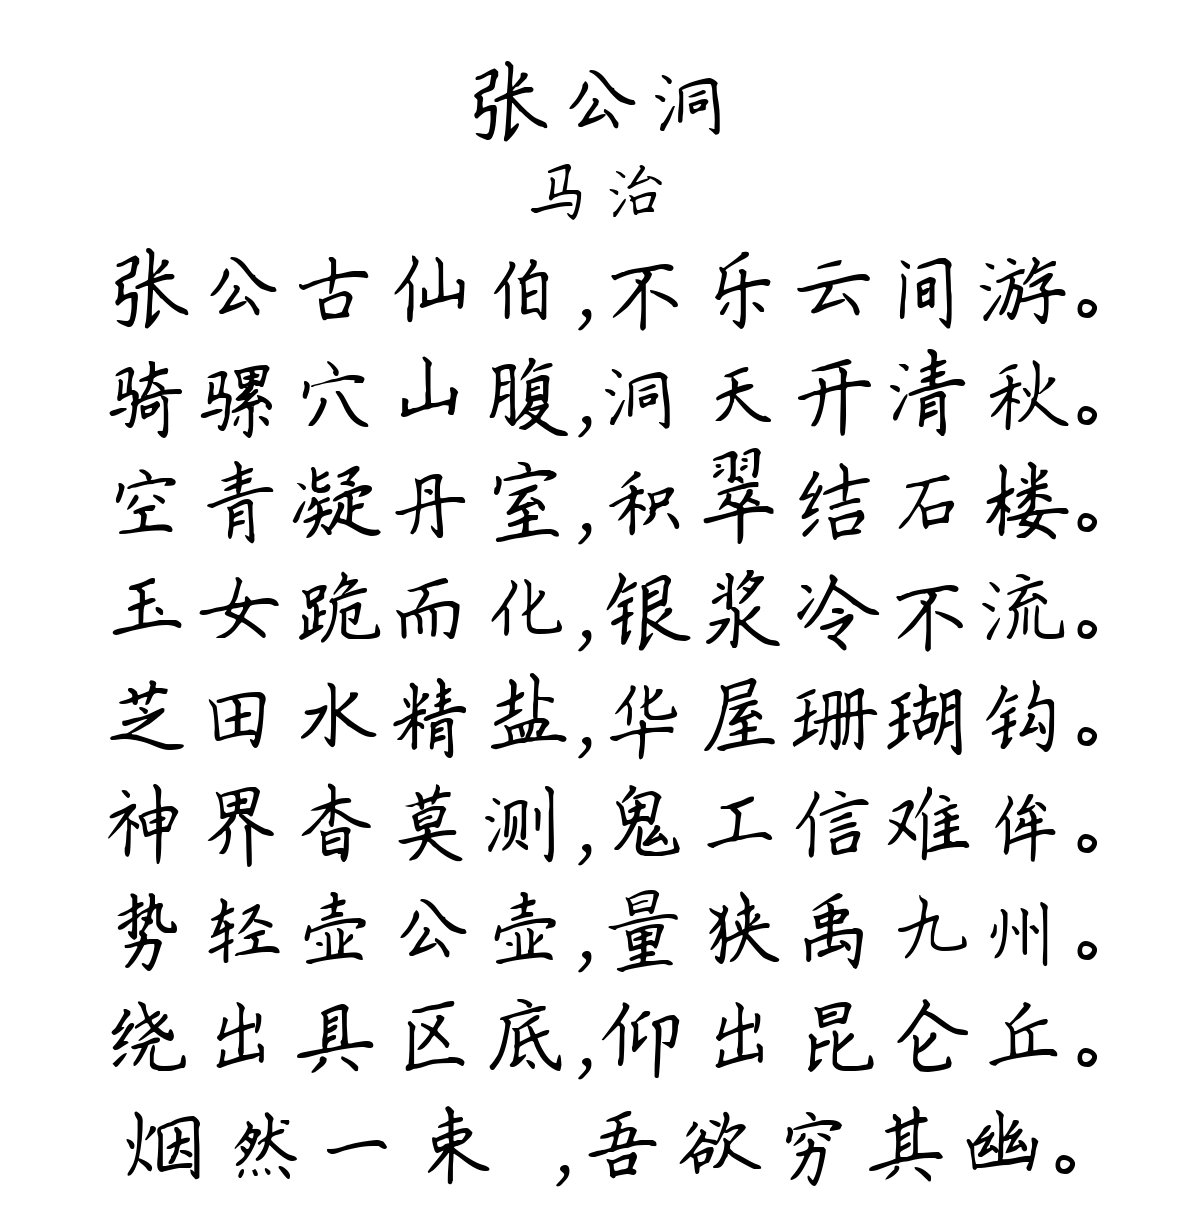 张公洞
马治
张公古仙伯,不乐云间游。
骑骡穴山腹,洞天开清秋。
空青凝丹室,积翠结石楼。
玉女跪而化,银浆冷不流。
芝田水精盐,华屋珊瑚钩。
神界杳莫测,鬼工信难侔。
势轻壶公壶,量狭禹九州。
绕出具区底,仰出昆仑丘。
烟然一束 ,吾欲穷其幽。